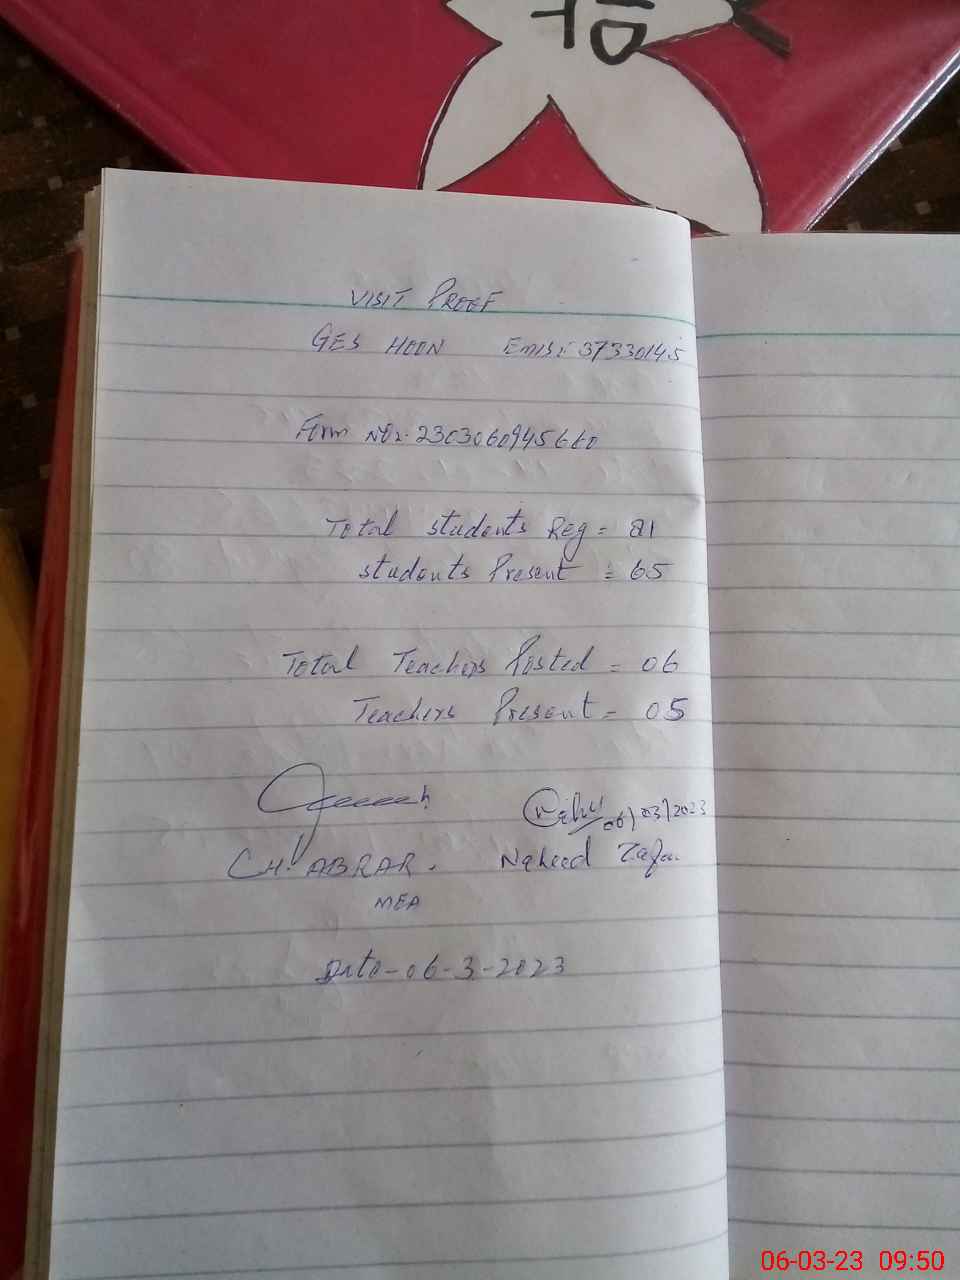 VISIT PROOF
GES HOON EMIS: 37330145
Form No:- 2303060945660
Total students Reg = 81
students Present = 65
Total Teachers Posted = 06
Teachers Present = 05
06/03/2023
CH. ABRAR. Naheed Zafar
MEA
Date - 06-3-2023
06-03-23 09:50